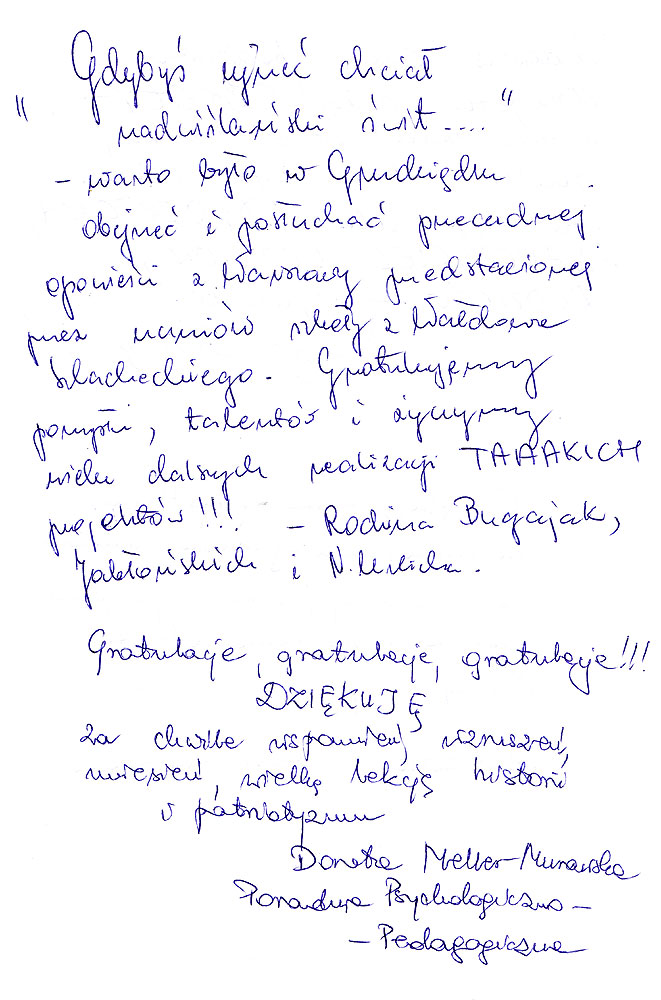 Gdybyś ujrzeć chciał
" nadwiślański świt...."
- warto było w Grudziądzu
obejrzeć i posłuchać przecudnej
opowieści z Warszawy przedstawionej
przez uczniów szkoły z Wałdowa
Szlacheckiego. Gratulujemy
pomysłu, talentów i życzymy
wielu dalszych realizacji TAAAKICH
projektów!!! - Rodzina Bugajak,
Jabłońskich i N.
Gratulacje, gratulacje, gratulacje!!!
DZIĘKUJĘ
za chwile wspomnień, wzruszeń,
uniesień, wielką lekcję historii
i patriotyzmu
Doneta Meller-Murawska
Poradnia Psychologiczno -
- Pedagogiczna